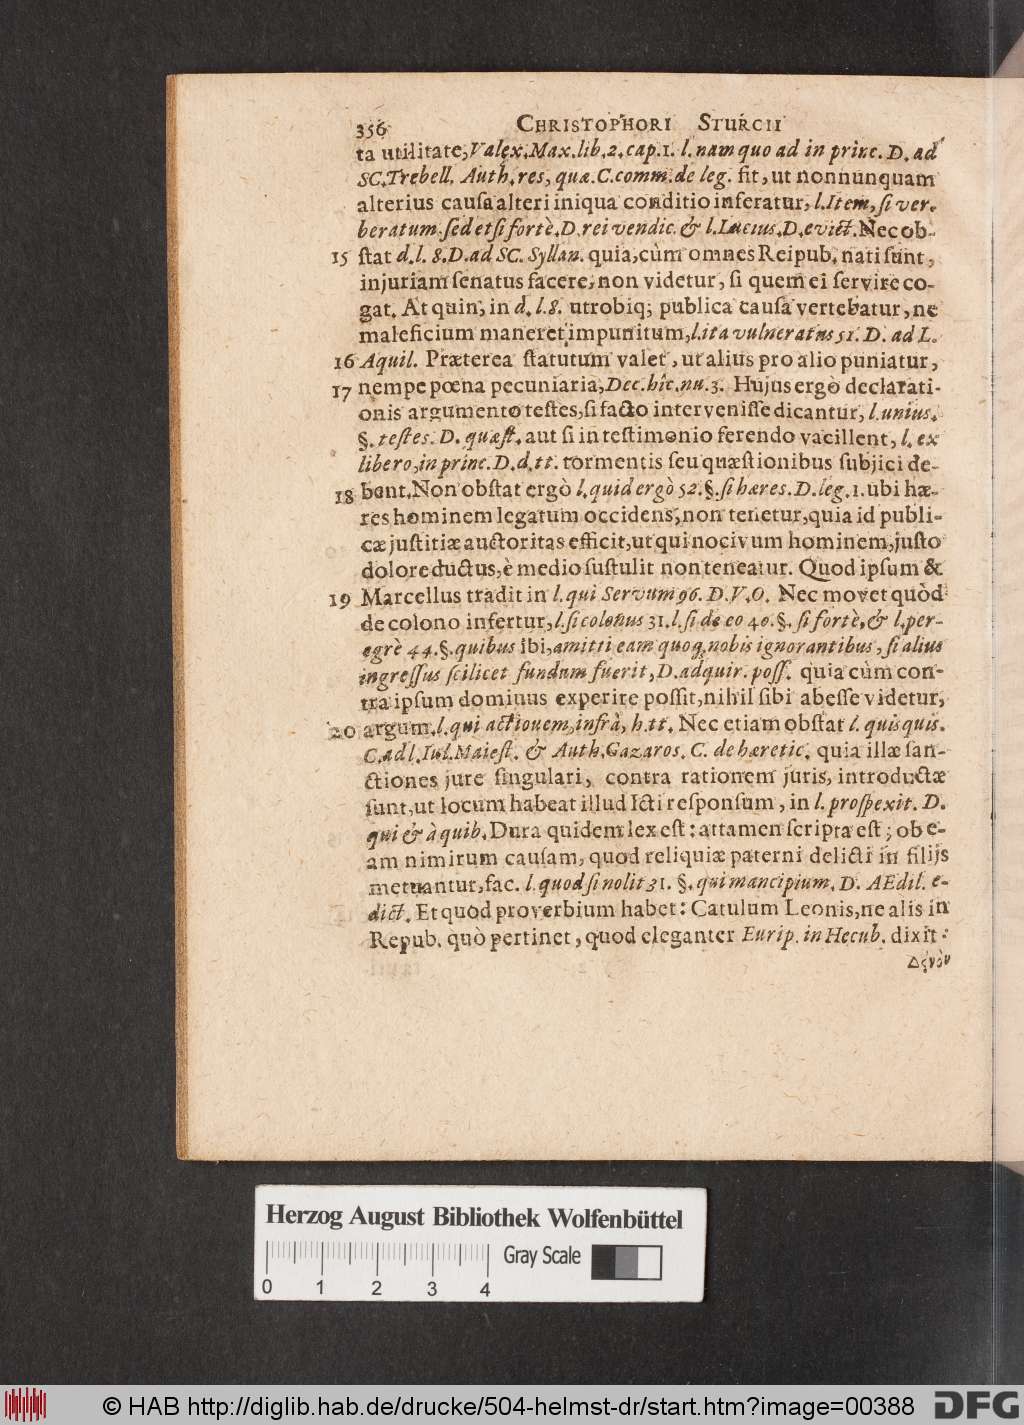 356 CHRISTOPHORI STURCII
ta utilitate, Valex. Max. lib. 2. cap. 1. l. nam quo ad in princ. D. ad
SC. Trebell. Auth. res, quæ. C. comm. de leg. fit, ut nonnunquam
alterius causa alteri iniqua conditio inferatur, l. Item, si ver-
beratum. sed etsi fortè. D. rei vendic. & l. Lucius. D. evict. Nec ob-
15 stat d. l. 8. D. ad SC. Syllan. quia, cùm omnes Reipub. nati sunt,
injuriam senatus facere, non videtur, si quem ei servire co-
gat. At quin, in d. l. 8. utrobiq; publica causa vertebatur, ne
maleficium maneret impunitum, l. ita vulneratus 51. D. ad L.
16 Aquil. Præterea statutum valet, ut alius pro alio puniatur,
17 nempe pœna pecuniaria, Dec. hîc. nu. 3. Hujus ergò declarati-
onis argumento testes, si facto intervenisse dicantur, l. unius.
§. testes. D. quæst. aut si in testimonio ferendo vacillent, l. ex
libero, in princ. D. d. tt. tormentis seu quæstionibus subjici de-
18 bent. Non obstat ergò l. quid ergò 52. §. si hæres. D. leg. 1. ubi hæ-
res hominem legatum occidens, non tenetur, quia id publi-
cæ justitiæ auctoritas efficit, ut qui nocivum hominem, justo
dolore ductus, è medio sustulit non teneatur. Quod ipsum &
19 Marcellus tradit in l. qui Servum 96. D. V. O. Nec movet quòd
de colono infertur, l. si colonus 31. l. si de eo 40. §. si fortè, & l. per-
egrè 44. §. quibus ibi, amitti eam quoq, nobis ignorantibus, si alius
ingressus scilicet fundum fuerit, D. adquir. poss. quia cùm con-
tra ipsum dominus experire possit, nihil sibi abesse videtur,
20 argum. l. qui actionem, infrà, h. tt. Nec etiam obstat l. quisquis.
C. ad l. Iul. Maiest. & Auth. Gazaros. C. de hæretic. quia illæ san-
ctiones jure singulari, contra rationem juris, introductæ
sunt, ut locum habeat illud Icti responsum, in l. prospexit. D.
qui & à quib. Dura quidem lex est: attamen scripta est; ob e-
am nimirum causam, quod reliquiæ paterni delicti in filijs
metuantur, fac. l. quod si nolit 31. §. qui mancipium. D. AEdil. e-
dict. Et quod proverbium habet: Catulum Leonis, ne alis in
Repub. quò pertinet, quod eleganter Eurip. in Hecub. dixit:
Δεινὸν
Herzog August Bibliothek Wolfenbüttel
Gray Scale
0 1 2 3 4
© HAB http://diglib.hab.de/drucke/504-helmst-dr/start.htm?image=00388
DFG